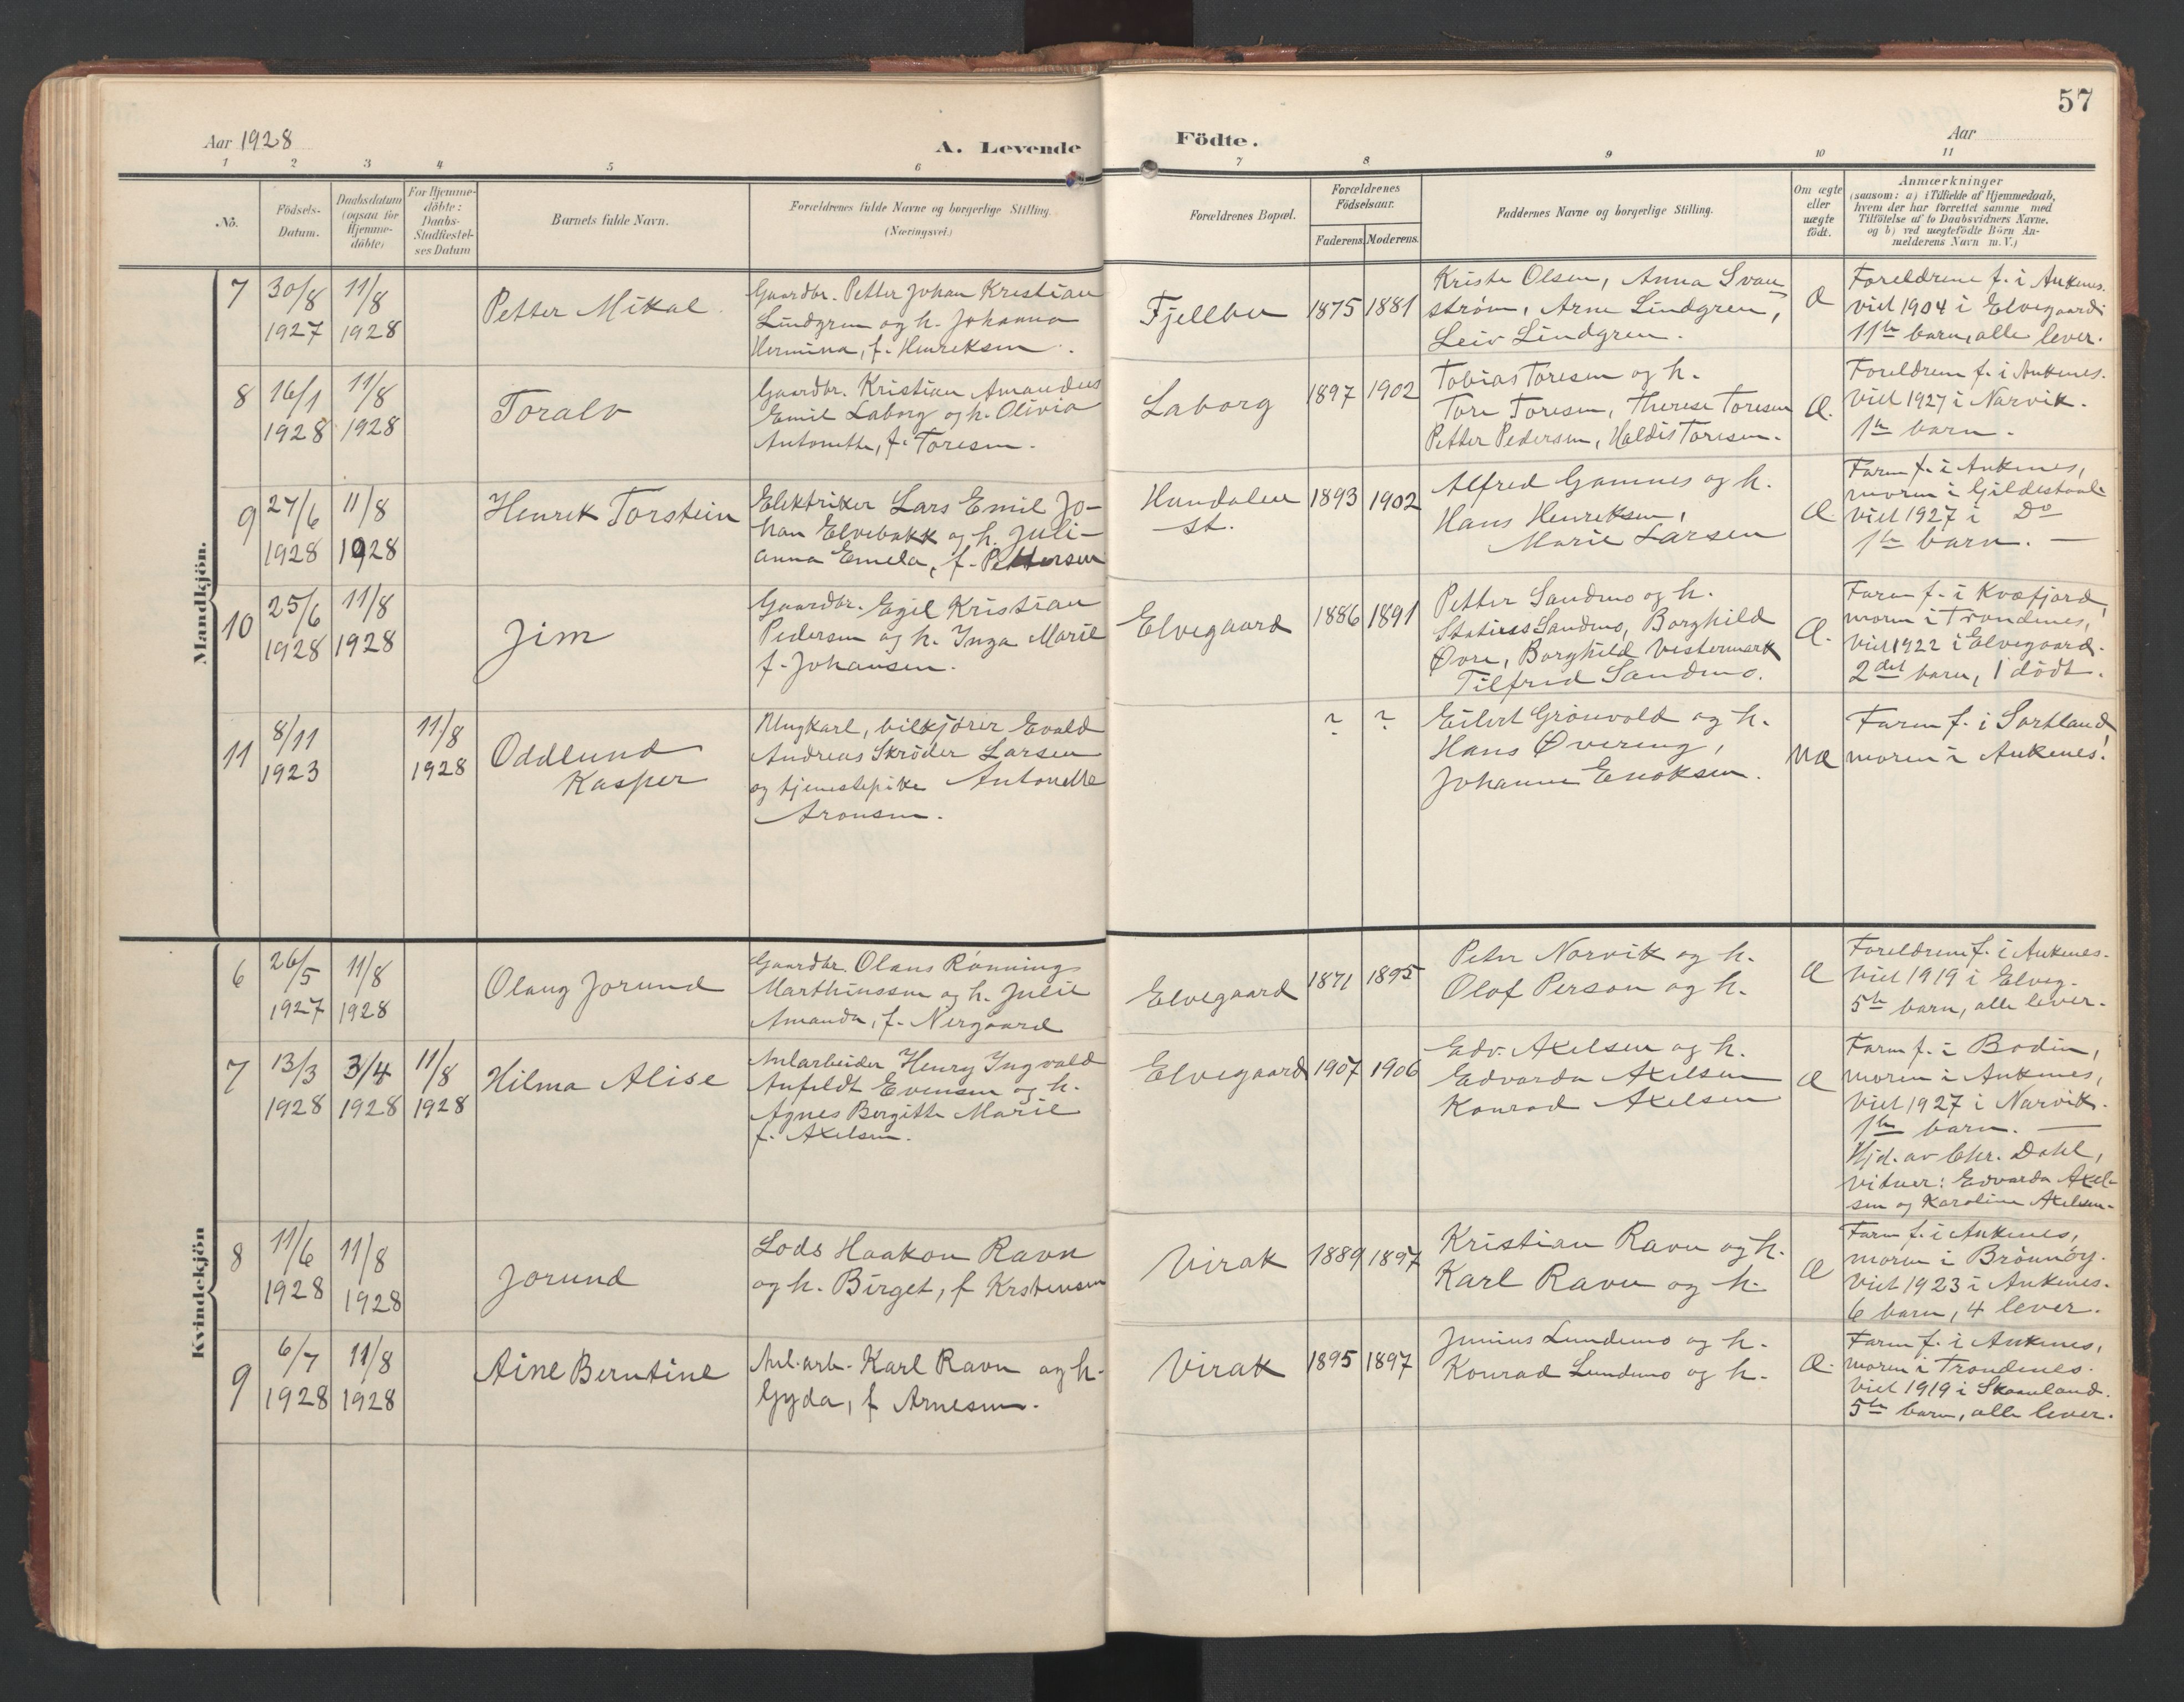 57
Aar 1928
A. Levende
Födte.
Aar
1 2 3 4 5 6 7 8 9 10 11
No.
Födsels-
Datum.
Daabsdatum
(ogsaa for
Hjemme-
döbte)
For Hjemme-
döbte:
Daabs-
Stadfæstel-
ses Datum
Barnets fulde Navn.
Forældrenes fulde Navne og borgerlige Stilling.
(Næringsvei.)
Forældrenes Bopæl.
Forældrenes
Födselsaar.
Faderens. Moderens.
Faddernes Navne og borgerlige Stilling.
Om ægte
eller
uægte
födt.
Anmærkninger
(saasom: a) i Tilfælde af Hjemmedaab,
hvem der har forrettet samme med
Tilföielse af to Daabsvidners Navne,
og b) ved uægtefödte Börn An-
melderens Navn m. V.)
Mandkjön.
7
30/8
1927
11/8
1928
Petter Mikal
Gaardbr. Petter Johan Kristian
Lindgren og h. Johanna
Hermina, f. Henriksen.
Fjellbu
1875 1881
Kriste Olsen, Anna Svan-
strøm, Arne Lindgren,
Leiv Lindgren.
Æ
Foreldrene f. i Ankenes.
Viet 1904 i Elvegaard.
11te barn, alle lever.
8
16/1
1928
11/8
1928
Toralv
Gaardbr. Kristian Amandus
Emil Laborg og h. Olivia
Antonette, f. Toresen.
Laborg
1897 1902
Tobias Toresen og h.
Tore Toresen, Therese Toresen
Petter Pedersen, Haldis Toresen.
Æ.
Foreldrene f. i Ankenes.
Viet 1927 i Narvik.
1te barn.
9
27/6
1928
11/8
1928
Henrik Torstein
Elektriker Lars Emil Jo-
han Elvebakk og h. Juli-
anna Emela, f. Pettersen
Hundalen
st.
1893 1902
Alfred Gamnes og h.
Hans Henriksen,
Marie Larsen
Æ.
Faren f. i Ankenes,
moren i Gildeskaal.
Viet 1927 i Do
1te barn. —
10
25/6
1928
11/8
1928
Jim
Gaardbr. Egil Kristian
Pedersen og h. Inga Marie
f. Johansen.
Elvegaard
1886 1891
Petter Sandmo og h.
Sandmo, Borghild
Øvre, Borghild Vestermark
Tilfrid Sandmo.
Æ.
Faren f. i Kvæfjord,
moren i Trondenes,
Viet 1922 i Elvegaard.
2det barn, 1 dödt.
11
8/11
1923
11/8
1928
Oddlund
Kasper
Ungkarl, bilkjører Evald
Andreas Skrøder Larsen
og tjenestepike Antonette
Aronsen.
? ?
Eilert Grönvold og h.
Hans Øvering,
Johanne Enoksen.
UÆ
Faren f. i Sortland,
moren i Ankenes.
Kvindekjön
6
26/5
1927
11/8
1928
Olaug Jorund
Gaardbr. Olaus Rønnings
Marthinussen og h. Julie
Amanda, f. Nergaard
Elvegaard
1871 1895
Peter Norvik og h.
Olof Person og h.
Æ
Foreldrene f. i Ankenes.
Viet 1919 i Elveg.
5te barn, alle lever.
7
13/3
1928
3/4
1928
11/8
1928
Hilma Alise
Anlarbeider Henry Ingvald
Anfeldt Evensen og h.
Agnes Bergitte Marie
f. Axelsen.
Elvegaard
1907 1906
Edv. Axelsen og h.
Edvarda Axelsen
Konrad Axelsen
Æ
Faren f. i Bodin,
moren i Ankenes,
Viet 1927 i Narvik.
1te barn. —
Hjd. av Chr. Dahl,
vidner: Edvarda Axel-
sen og Karoline Axelsen.
8
11/6
1928
11/8
1928
Jorund
Lods Haakon Ravn
og h. Birget, f. Krstensen
Virak
1889 1897
Kristian Ravn og h.
Karl Ravn og h.
Æ
Faren f. i Ankenes,
moren i Brönnöy.
Viet 1923 i Ankenes.
6 barn, 4 lever.
9
6/7
1928
11/8
1928
Aine Berntine
Anl. arb. Karl Ravn og h.
Gyda, f. Arnesen.
Virak
1895 1897
Junius Lundmo og h.
Konrad Lundmo og h.
Æ.
Faren f. i Ankenes,
moren i Trondenes.
Viet 1919 i Skaanland.
5te barn, alle lever.